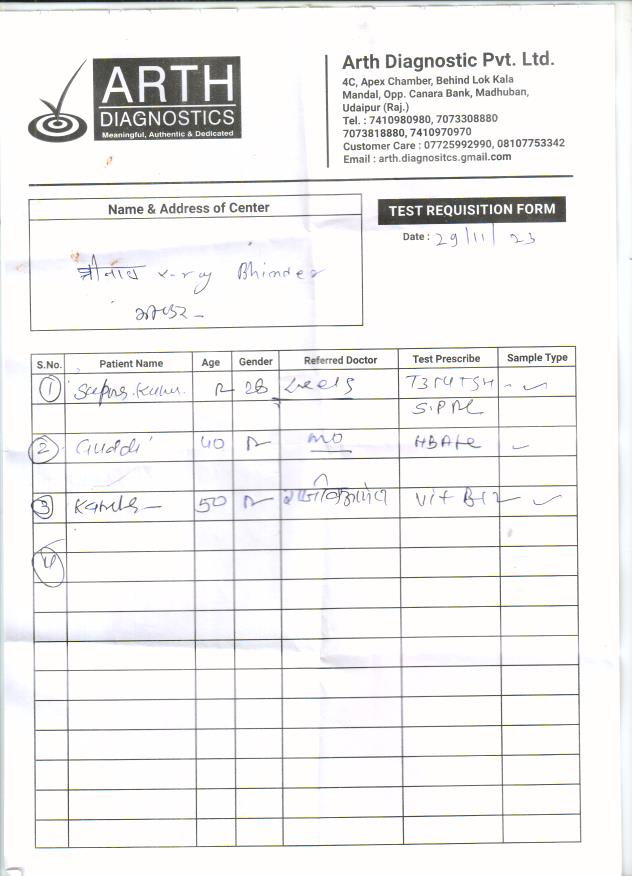 ARTH
DIAGNOSTICS
Meaningful, Authentic & Dedicated
Arth Diagnostic Pvt. Ltd.
4C, Apex Chamber, Behind Lok Kala
Mandal, Opp. Canara Bank, Madhuban,
Udaipur (Raj.)
Tel. : 7410980980, 7073308880
7073818880, 7410970970
Customer Care : 07725992990, 08107753342
Email : arth.diagnositcs.gmail.com
Name & Address of Center
TEST REQUISITION FORM
Date : 29/11/23
श्रीनाथ x-ray Bhinder
S.No. Patient Name Age Gender Referred Doctor Test Prescribe Sample Type
1 28 T3 T4 TSH
S.PRL
2 Guddi 40 MO HBA1c
3 50 Vit B12
4